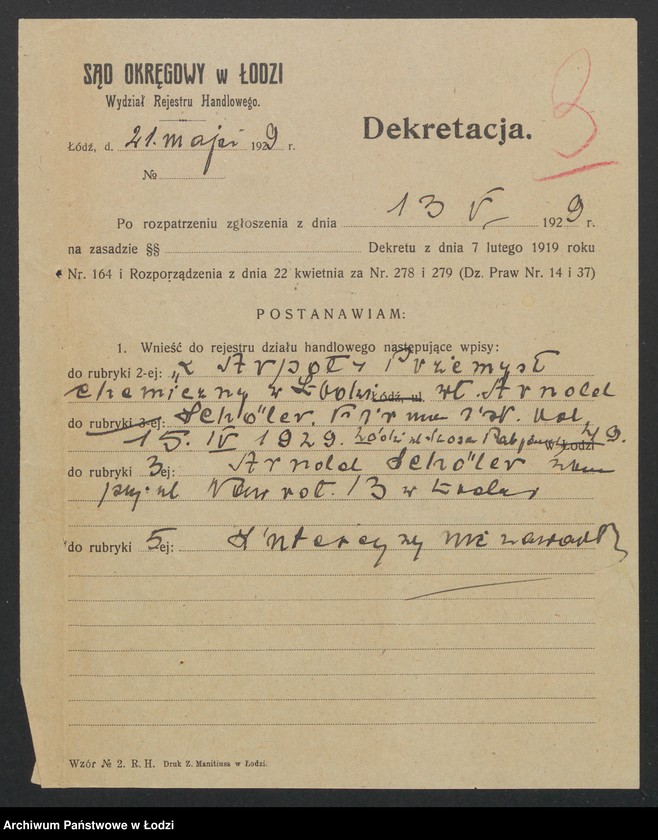 SĄD OKRĘGOWY w ŁODZI
Wydział Rejestru Handlowego.
Dekretacja.
3
Łódź, d. 21. maja 1929 r.
№
Po rozpatrzeniu zgłoszenia z dnia 13 V 1929 r.
na zasadzie §§ Dekretu z dnia 7 lutego 1919 roku
Nr. 164 i Rozporządzenia z dnia 22 kwietnia za Nr. 278 i 279 (Dz. Praw Nr. 14 i 37)
POSTANAWIAM:
1. Wnieść do rejestru działu handlowego następujące wpisy:
do rubryki 2-ej: Przemysł
chemiczny w Łodzi Łódź, ul. wł. Arnold
do rubryki 3-ej: Schöler. Firma istn. od
15. IV 1929. Łódź w Łodzi 29.
do rubryki 3ej: Arnold Schöler zam
przy ul Nawrot. 13 w Łodzi
do rubryki 5ej: Intercyzy nie zawarł
Wzór № 2. R. H. Druk Z. Manitiusa w Łodzi.
Archiwum Państwowe w Łodzi